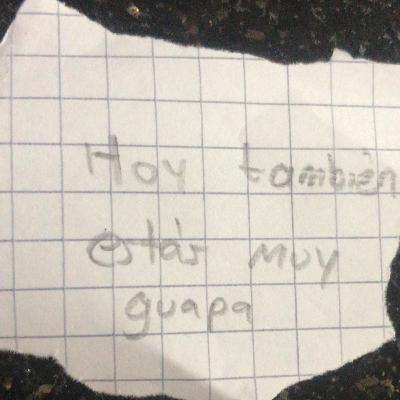 Hoy también
estás muy
guapa